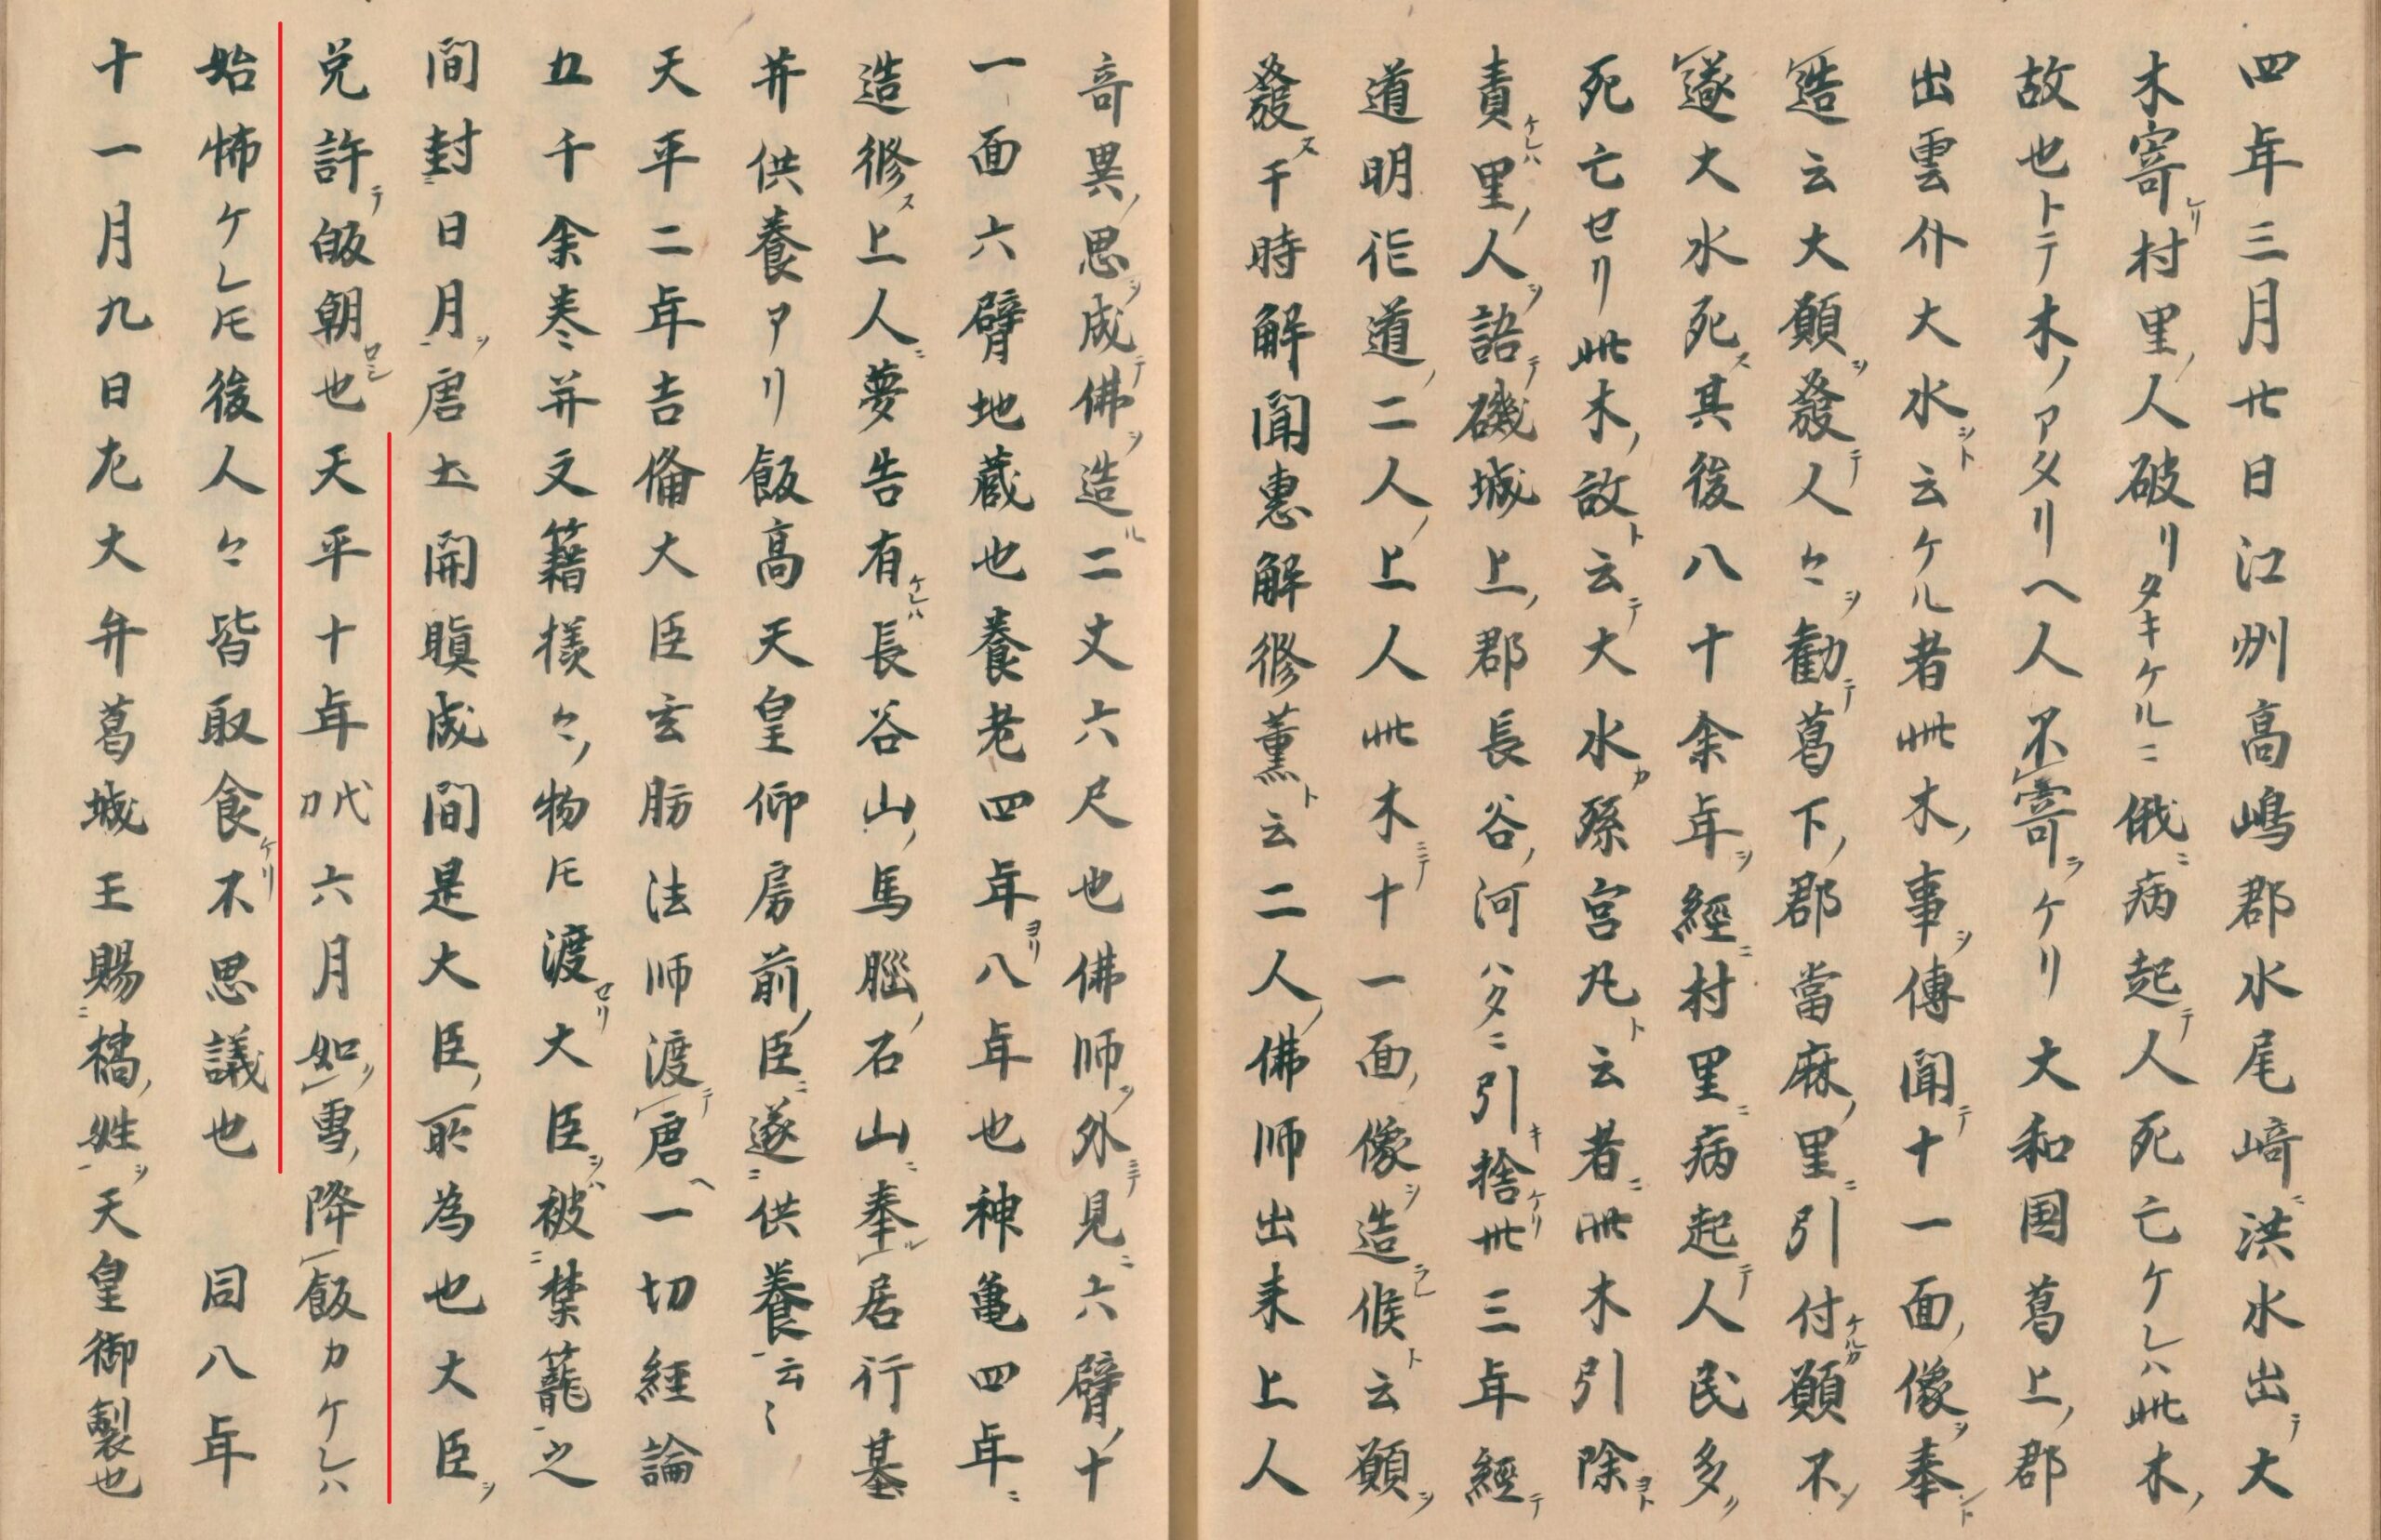 四年三月廿日江州高嶋郡水尾﨑ニ洪水出テ大
木寄ケリ村里ノ人破リタキケルニ俄ニ病起テ人死亡ケレハ此木ノ
故也トテ木ノアタリヘ人不寄ラケリ大和国葛上ノ郡
出雲仆大水ント云ケル者此木ノ事ヲ傳聞テ十一面ノ像ヲ奉ント
造云大願ヲ發テ人々ヲ勸テ葛下ノ郡當麻ノ里ニ引付ケルカ願不ソ
遂大水死ス其後八十余年ヲ經ニ村里ニ病起テ人民多ソ
死亡セリ此木ノ故ト云テ大水カ孫宮丸ト云者ニ此木引除ヨト
責ケレハ里ノ人ヲ語テ磯城上ノ郡長谷ノ河ハタニ引キ捨ケリ此三年經テ
道明作道ノ二人ノ上人此木ニテ十一面ノ像ヲ造ラレ候ト云願ヲ
發ス干時解聞惠解修薫ト云二人ノ佛师出来上人
奇異ノ思ヲ成テ佛ヲ造ル二丈六尺也佛师ノ外ニテ見ニ六臂ノ十
一面六臂地蔵也養老四年ヨリ八年也神亀四年ニ
造修ス上人ニ夢告有ケレハ長谷山ノ馬脳ノ石山ニ奉ル居行基
并供養アリ飯高天皇仰房前ノ臣ニ遂ニ供養云〻
天平二年吉備大臣玄肪法师渡テ唐ヘ一切経論
五千余巻并文籍様々ノ物トモ渡セリ大臣ヲハ被ニ禁籠之
間封日月ヲ唐土開瞋成間是大臣ノ所為也大臣ヲ
免許テ皈朝ロシ也天平十年カ代六月如ソ雪ノ降飯カケレハ
始怖ケレトモ後人々皆取食ケリ不思議也　同八年
十一月九日左大弁葛城王賜ニ橘ノ姓ヲ天皇御製也